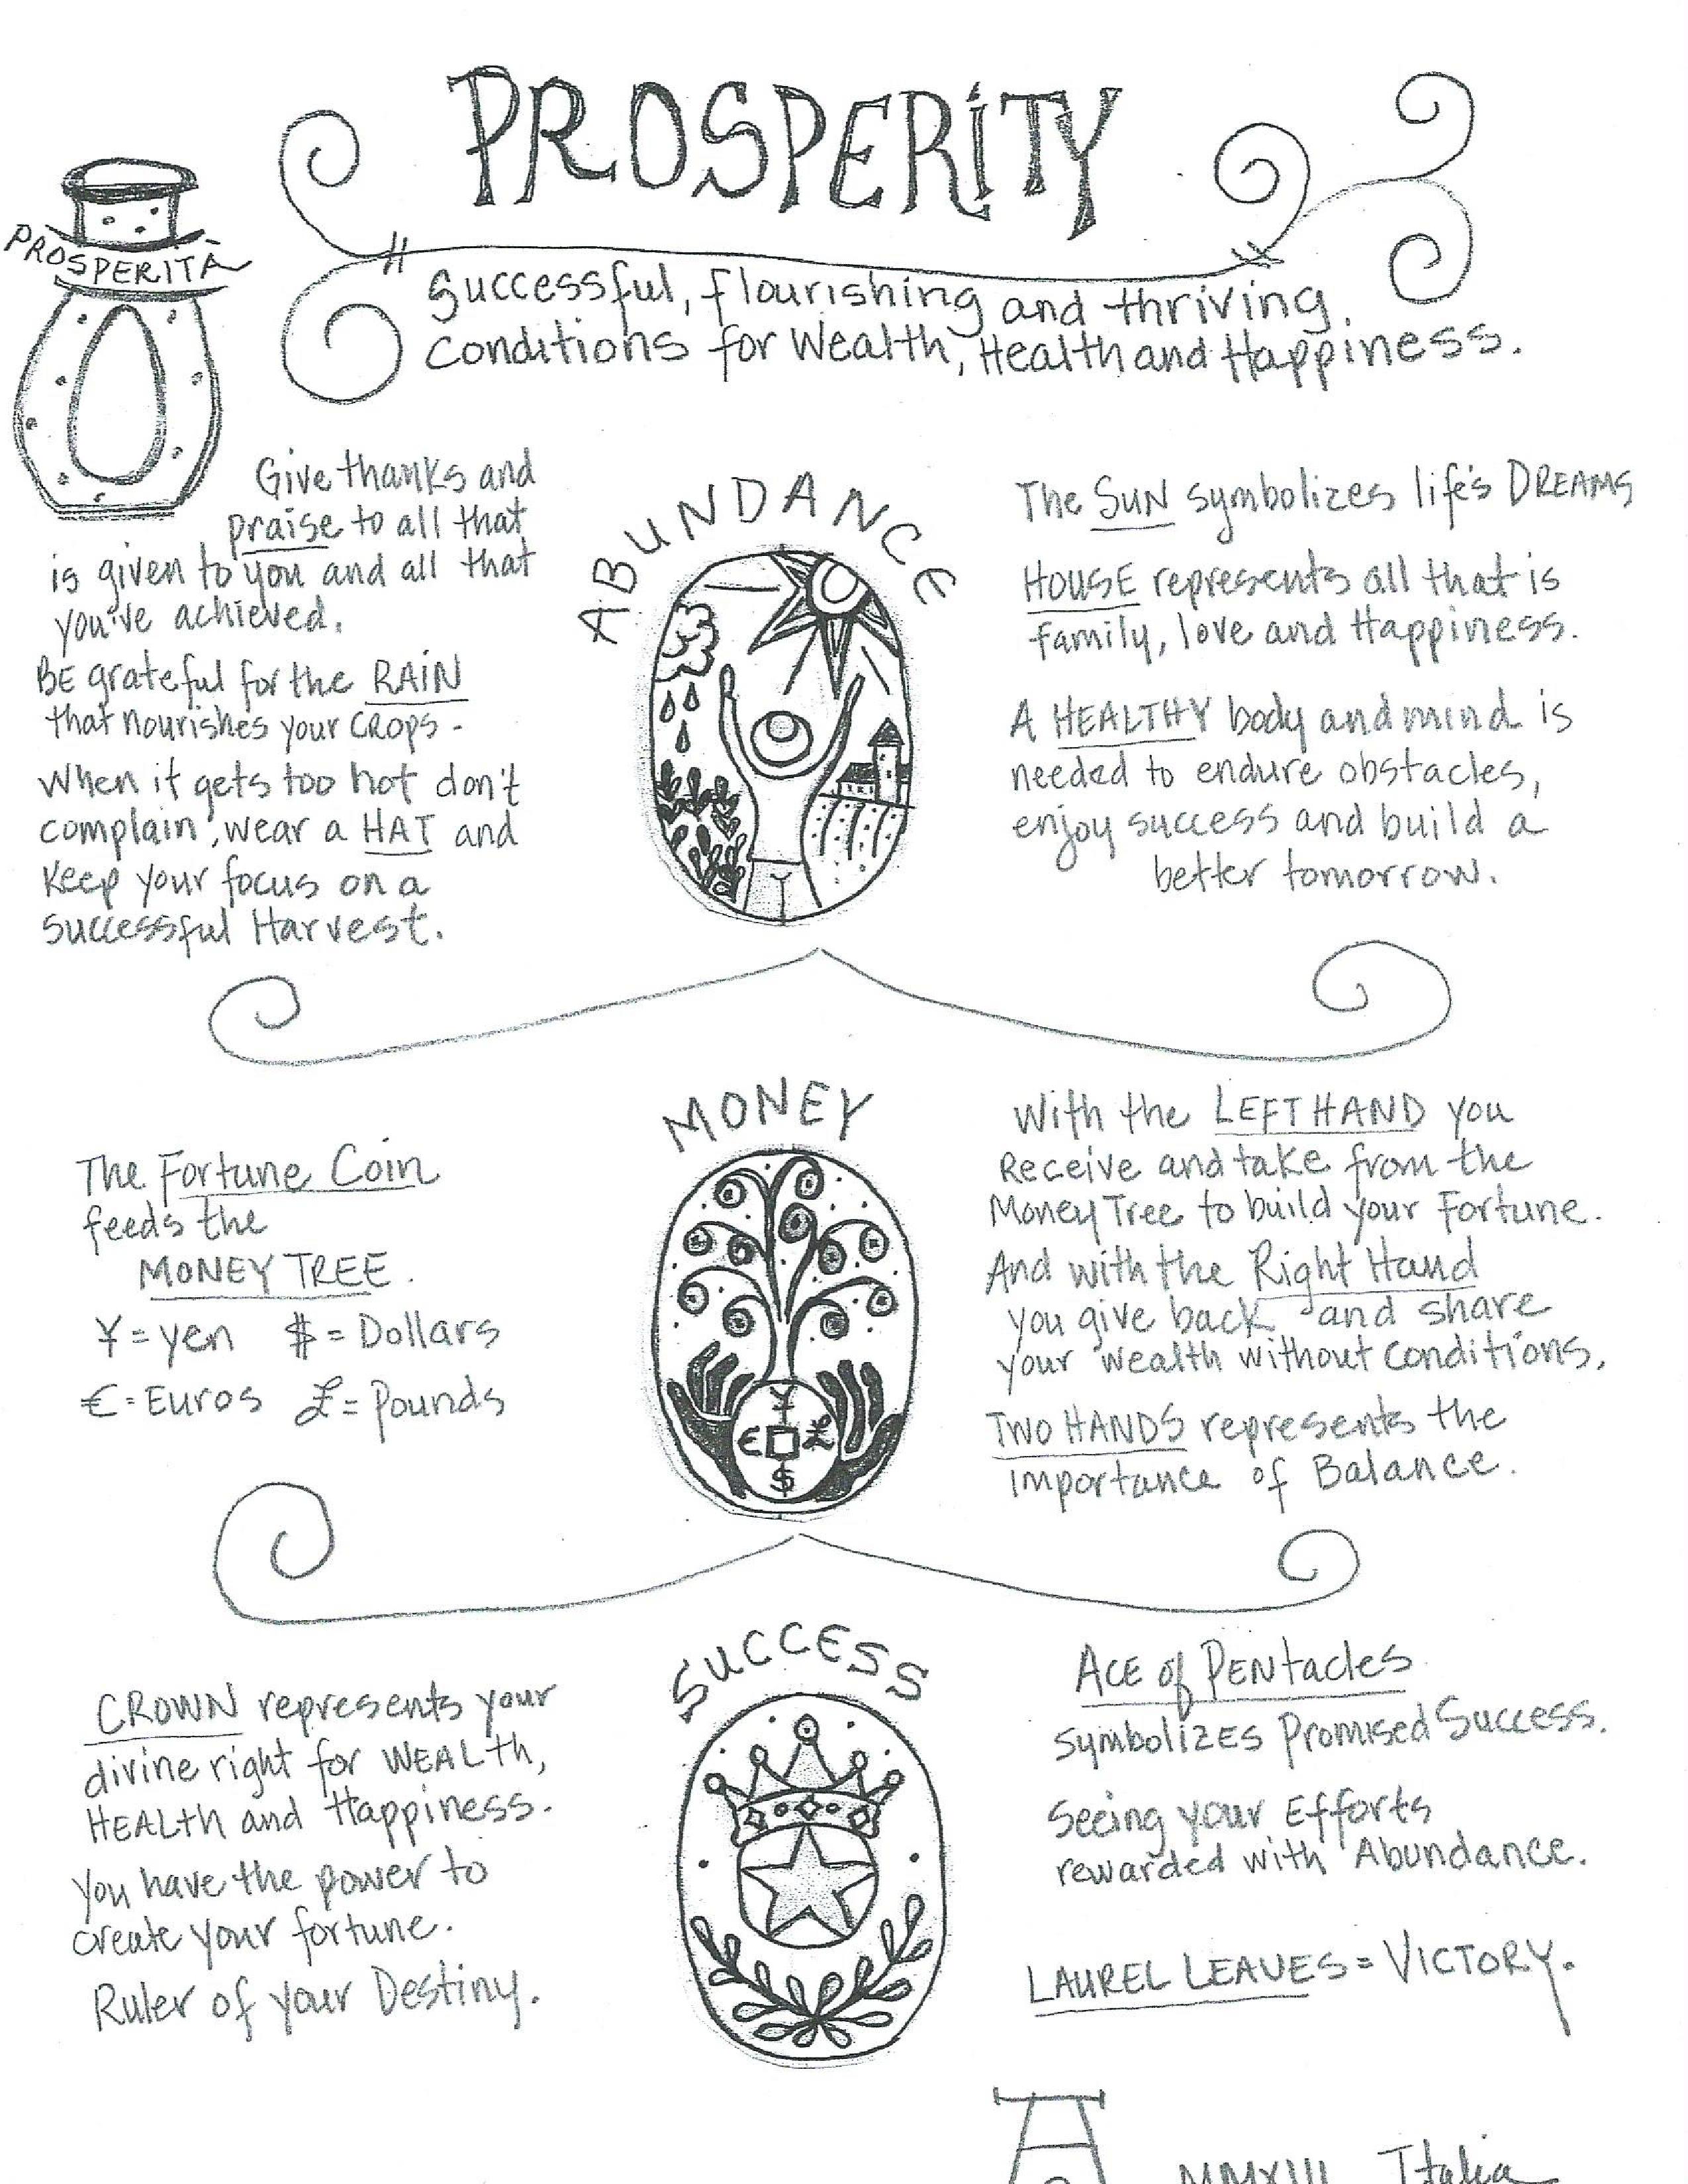 PROSPERITY
PROSPERITÀ
Successful, flourishing and thriving
conditions for Wealth, Health and Happiness.
Give thanks and
praise to all that
is given to you and all that
you've achieved.
BE grateful for the RAIN
that nourishes your CROPS -
When it gets too hot don't
complain, wear a HAT and
Keep your focus on a
Successful Harvest.
ABUNDANCE
The SUN symbolizes life's DREAMS
HOUSE represents all that is
family, love and Happiness.
A HEALTHY body and mind is
needed to endure obstacles,
enjoy success and build a
better tomorrow.
The Fortune Coin
feeds the
MONEY TREE.
¥ = yen $ = Dollars
€ = Euros £ = Pounds
MONEY
¥
€ £
$
With the LEFT HAND you
Receive and take from the
Money Tree to build your Fortune.
And with the Right Hand
you give back and share
your wealth without conditions.
TWO HANDS represents the
importance of Balance.
CROWN represents your
divine right for WEALth,
HEALth and Happiness.
You have the power to
create your fortune.
Ruler of your Destiny.
SUCCESS
ACE of PENtacles
symbolizes Promised Success.
Seeing your Efforts
rewarded with Abundance.
LAUREL LEAVES = VICTORY.
MMXIII Italia